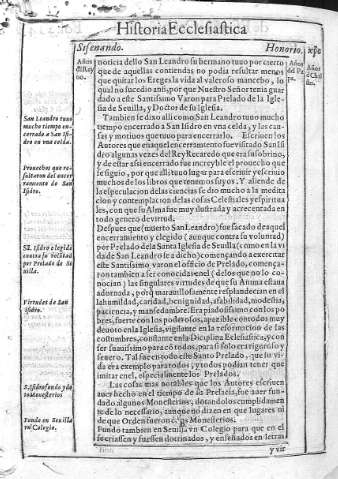 Historia Ecclesiastica
Sisenando. Honorio.
noticia dello San Leandro su hermano tuuo por cierto
que de aquellas contiendas no podia resultar menos
que quitar los Ereges la vida al valeroso mancebo, lo
qual no sucedio ansi, por que Nuestro Señor tenia guar
dado a este Santissimo Varon para Prelado de la Igle
sia de Seuilla, y Doctor de su Iglesia.
Tambien se dixo alli como San Leandro tuuo mucho
tiempo encerrado a San Isidro en vna celda, y las cau
sas y motiuos que tuuo para encerrarlo. Escriuen los
Autores que en aquel encerramiento fue visitado San Isi
dro algunas vezes del Rey Recaredo que era su sobrino,
y de estar assi encerrado fue increyble el prouecho que
se siguio, por que alli tuuo lugar para escriuir y escriuio
muchos de los libros que tenemos suyos. Y aliende de
la especulacion de las ciencias se dio mucho a la medita
cion y contemplacion de las cosas Celestiales y espiritua
les, con que su Alma fue muy ilustrada y acrecentada en
todo genero de virtud.
Despues que (muerto San Leandro) fue sacado de aquel
encerramiento y elegido (aunque contra su voluntad)
por Prelado de la Santa Iglesia de Seuilla (como en la vi
da de San Isidro se a dicho) començando a exercitar
este Santissimo varon el officio de Prelado, comença
ron tambien a ser conocidas en el (de los que no lo co
nocian) las singulares virtudes de que su Anima estaua
adornada, porque marauillosamente resplandecian en el
la humildad, caridad, benignidad, afabilidad, modestia,
paciencia, y mansedumbre. Era piadosissimo con los po
bres, fuerte con los poderosos, apazible con todos muy
deuoto en la Iglesia, vigilante en la reformacion de las
costumbres, constante en la Diciplina Ecclesiastica, y con
ser suauissimo para cõ todos, para si solo era riguroso y
seuero. Tal fue en todo este Santo Prelado, que su vi
da era exemplo para todos, y todos podian tener que
imitar en el, especialmente los Prelados.
Las cosas mas notables que los Autores escriuen
auer hecho en el tiempo de la Prelacia, fue auer fun
dado algunos Monesterios, dotandolos cumplidamen
te de lo necessario, aunque no dizen en que lugares ni
de que Orden fueron los Monesterios.
Fundo tambien en Seuilla vn Colegio para que en el
se criassen y fuessen dotrinados, y enseñados en letras
y vir
San Leandro tuuo
mucho tiempo en-
cerrado a San Isi-
dro en vna celda.
Prouechos que re-
sultaron del encer
ramiento de San
Isidro.
S. Isidro elegido
contra su volũtad
por Prelado de Se
uilla.
Virtudes de San
Isidro.
S. Isidro fundo y do
to Monesterios
Fundo en Seuilla
vn Colegio.